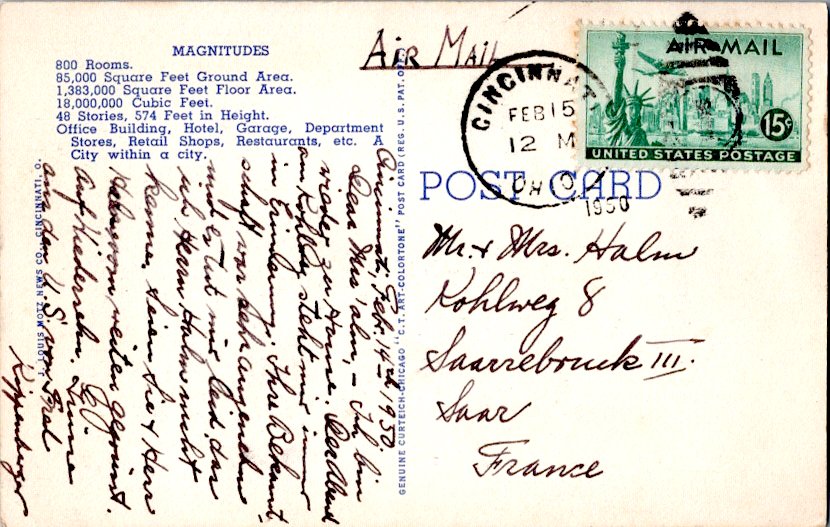 MAGNITUDES
800 Rooms.
85,000 Square Feet Ground Area.
1,383,000 Square Feet Floor Area.
18,000,000 Cubic Feet.
48 Stories, 574 Feet in Height.
Office Building, Hotel, Garage, Department
Stores, Retail Shops, Restaurants, etc. A
City within a city.
Air Mail
CINCINNATI
FEB 15
12 M
OHIO
1950
AIR MAIL
15¢
UNITED STATES POSTAGE
POST CARD
Mr. & Mrs. Halm
Kohlweg 8
Saarrebruck III.
Saar
France
Cincinnati, Feb. 14th, 1950.
Dear Mrs. alm, – Ich bin
wieder zu Hause.
am Kohlweg steht mir immer
in Erinnerung. Ihre Bekannt-
schaft war sehr angenehm
und es tut mir leid, das
ich Herrn Halm nicht
kenne. Seien Sie & Herr
Halm von weiten gegrüsst.
Auf Wiedersehn,
aus den U.S. von
Kippenberger
GENUINE CURTEICH-CHICAGO "C.T. ART-COLORTONE" POST CARD (REG. U.S. PAT. OFF.)
J. LOUIS MOTZ NEWS CO., CINCINNATI, O.